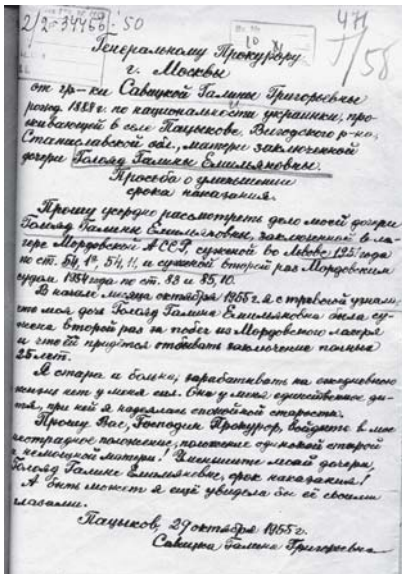 2/2-34766-50
471/58
Генеральному Прокурору
г. Москвы
от гр-ки Савицкой Галины Григорьевны
рожд. 1889 г. по национальности украинки, про-
живающей в селе Пацыкове, Выгодского р-на,
Станиславской обл., матери заключенной
дочери Голояд Галины Емильяновны.
Просьба о уменьшении
срока наказания.
Прошу усердно рассмотреть дело моей дочери
Голояд Галины Емильяновны, заключенной в ла-
гере Мордовской АССР, сужоной во Львове года
по ст. 54, 54, 11, и сужоной второй раз Мордовским
судом 1954 года по ст.
В начале месяца октября 1955 г. я с тревогой узнала,
что моя дочь Голояд Галина Емильяновна была су-
жена второй раз за побег из Мордовского лагеря
и что ей придётся отбывать заключение полных
25 лет.
Я стара и больна, зарабатывать на ежедневною
жизнь нет у меня сил. Она у меня единственное ди-
тя, при ней я надеялась спокойной старости.
Прошу Вас, Господин Прокурор, войдить в мое
положение, положение одинокой старой
и немощной матери! Уменьшите моей дочери,
Голояд Галине Емильяновне, срок наказания!
А быть может я ещё увидела бы её своими
глазами.
Пацыков, 29 октября 1955 г.
Савицка Галина Григорьевна